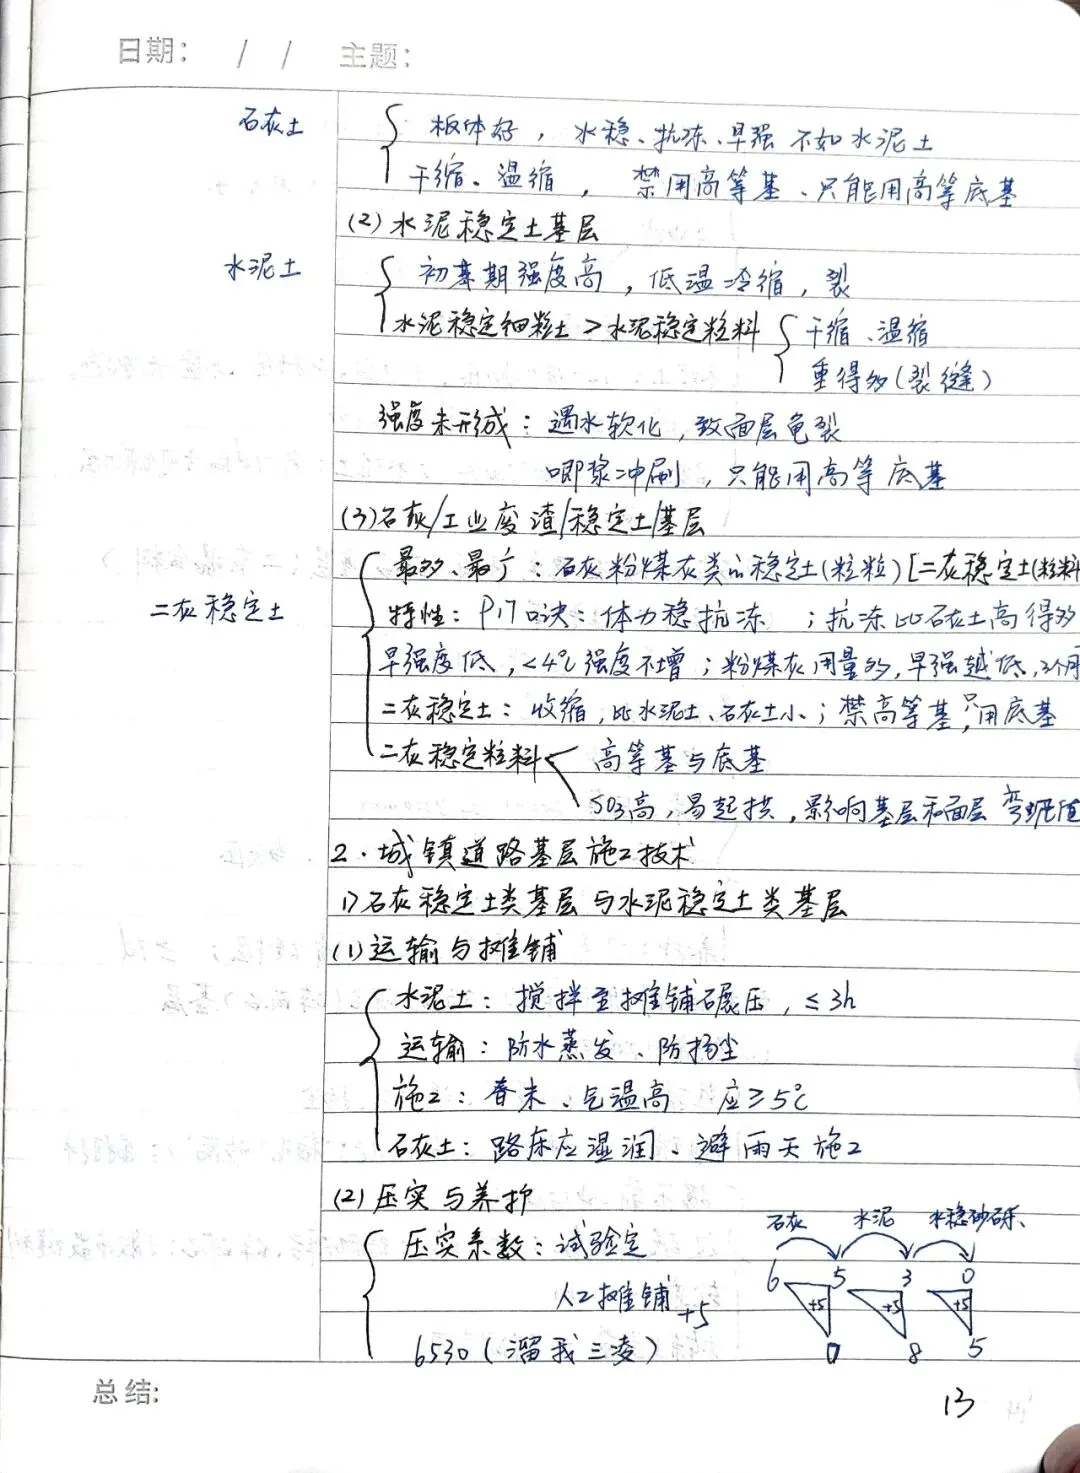 日期: / / 主题:
石灰土 板体好，水稳、抗冻、早强不如水泥土
干缩、温缩，禁用高等基、只能用高等底基
(2)水泥稳定土基层
水泥土 初期强度高，低温冷缩，裂
水泥稳定细粒土 > 水泥稳定粒料 干缩、温缩
重得多(裂缝)
强度未形成：遇水软化，致面层龟裂
唧浆冲刷，只能用高等底基
(3)石灰/工业废渣/稳定土/基层
最多、最广：石灰粉煤灰类的稳定土(粒粒)[二灰稳定土(粒料
二灰稳定土 特性：P17口诀：体力稳抗冻；抗冻比石灰土高得多
早强度低，<4℃强度不增；粉煤灰用量多，早强越低，3个月
二灰稳定土：收缩，比水泥土、石灰土小；禁高等基，只用底基
二灰稳定粒料 高等基与底基
SO3高，易起拱，影响基层和面层弯沉值
2.城镇道路基层施工技术
1)石灰稳定土类基层与水泥稳定土类基层
(1)运输与摊铺
水泥土：搅拌至摊铺碾压，≤3h
运输：防水蒸发、防扬尘
施工：春末、气温高 应≥5℃
石灰土：路床应湿润、避雨天施工
(2)压实与养护
石灰 水泥 水稳砂砾
压实系数：试验定
6 5 3 0
人工摊铺+5
+5 +5 +5
6530(溜我三凌)
8 5
总结:
13